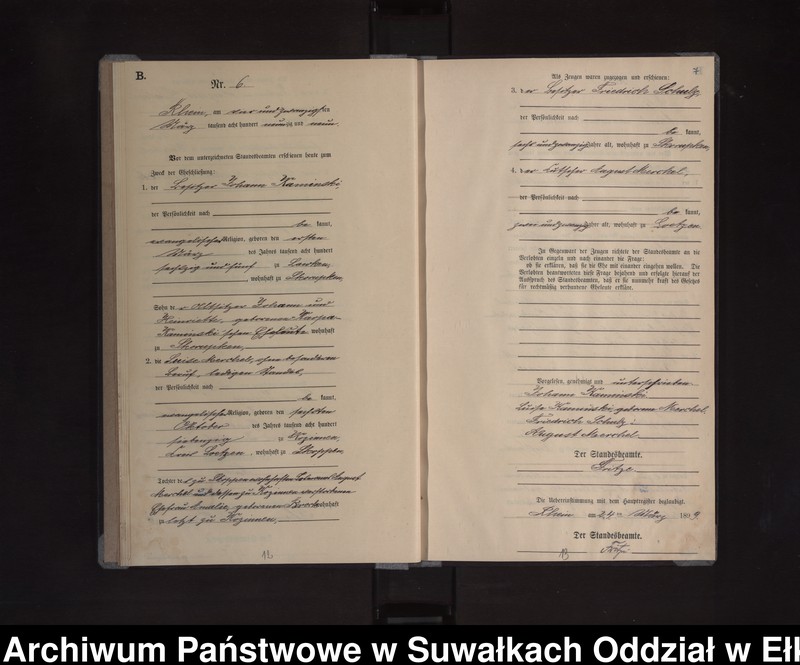 B.
Nr. 6.
Rhein, am vier und zwanzigsten
März tausend acht hundert neunzig und neun.
Vor dem unterzeichneten Standesbeamten erschienen heute zum
Zweck der Eheschließung:
1. der Besitzer Johann Kaminski,
der Persönlichkeit nach
be kannt,
evangelischer Religion, geboren den ersten
März des Jahres tausend acht hundert
sechszig und fünf zu
, wohnhaft zu
Sohn der Altsitzer Johann und
Henriette, geborenen
Kaminski'schen Eheleute wohnhaft
zu
2. die Luise Merchel, ohne besonderen
Beruf, ledigen Standes,
der Persönlichkeit nach
be kannt,
evangelischer Religion, geboren den sechsten
Oktober des Jahres tausend acht hundert
siebenzig zu
Kreis Loetzen, wohnhaft zu
Tochter des zu August
Merchel und dessen zu verstorbenen
Ehefrau Amalie, geborenen wohnhaft
zu letzt zu
12
7
Als Zeugen waren zugezogen und erschienen:
3. der Besitzer Friedrich Schulz,
der Persönlichkeit nach
be kannt,
sechs und zwanzig Jahre alt, wohnhaft zu
4. der Kutscher August Merchel,
der Persönlichkeit nach
be kannt,
zwei und zwanzig Jahre alt, wohnhaft zu Loetzen.
In Gegenwart der Zeugen richtete der Standesbeamte an die
Verlobten einzeln und nach einander die Frage:
ob sie erklären, daß sie die Ehe mit einander eingehen wollen. Die
Verlobten beantworteten diese Frage bejahend und erfolgte hierauf der
Ausspruch des Standesbeamten, daß er sie nunmehr kraft des Gesetzes
für rechtmäßig verbundene Eheleute erkläre.
Vorgelesen, genehmigt und unterschrieben
Johann Kaminski
Luise Kaminski, geborene Merchel.
Friedrich Schulz.
August Merchel
Der Standesbeamte.
Fritze
Die Uebereinstimmung mit dem Hauptregister beglaubigt.
Rhein am 24ten März 1899
Der Standesbeamte.
Fritze
13
Archiwum Państwowe w Suwałkach Oddział w Ełk